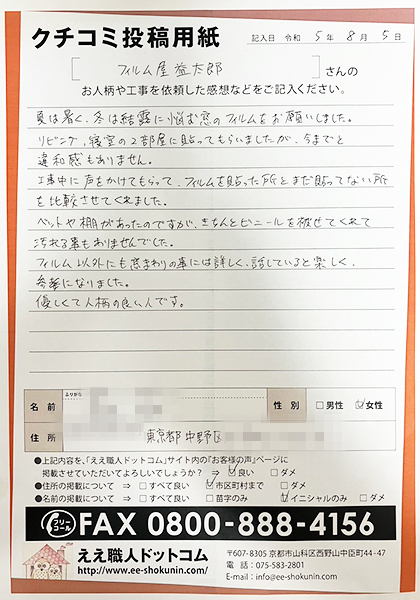 クチコミ投稿用紙
記入日 令和 5年 8月 5日
[フィルム屋益太郎]さんの
お人柄や工事を依頼した感想などをご記入ください。
夏は暑く、冬は結露に悩む窓のフィルムをお願いしました。
リビング、寝室の2部屋に貼ってもらいましたが、今までと
違和感もありません。
工事中に声をかけてもらって、フィルムを貼った所とまだ貼ってない所
を比較させてくれました。
ベットや棚があったのですが、きちんとビニールを被せてくれて
汚れる事もありませんでした。
フィルム以外にも窓まわりの事には詳しく、話していると楽しく、
参考になりました。
優しくて人柄の良い人です。
ふりがな
名前
性別 □男性 ☑女性
住所 東京都中野区
●上記内容を、「ええ職人ドットコム」サイト内の「お客様の声」ページに
掲載させていただいてよろしいでしょうか? ⇒ ☑良い □ダメ
●住所の掲載について ⇒ □すべて良い ☑市区町村まで □ダメ
●名前の掲載について ⇒ □すべて良い □苗字のみ ☑イニシャルのみ □ダメ
フリーコール FAX 0800-888-4156
ええ職人ドットコム
http://www.ee-shokunin.com/
〒607-8305 京都市山科区西野山中臣町44-47
電話:075-583-2801
E-mail:info@ee-shokunin.com